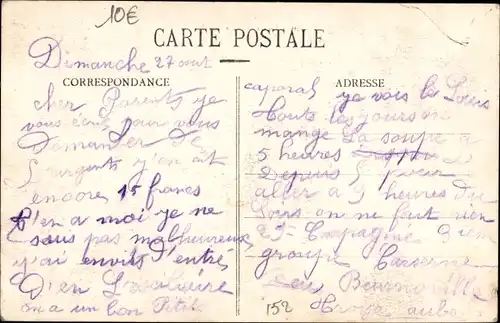 10€
CARTE POSTALE
Dimanche 27 aout
CORRESPONDANCE
ADRESSE
cher Parents je
vous écris pour vous
Demander De
l'argents j'en ait
encore 15 francs
j'en a moi je ne
sous pas malheureux
j'ai envits d'entré
D'en L'
on a un bon Petit
caporal je vois le Louis
toute les jours on
mange La soupe a
5 heures
Depuis 5 heur
aller a 9 heures du
soirs on ne fait rien
25 Compagnie 3 iem
groupe Caserne
Beurnoville
Troyes aube
152